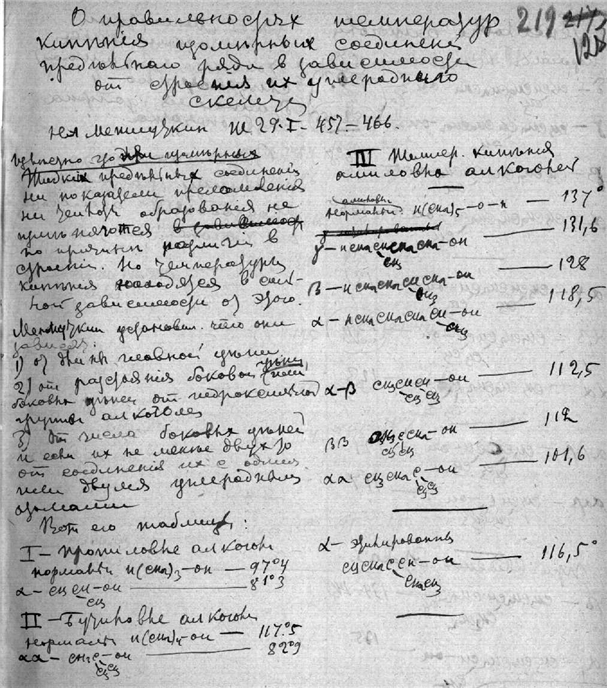 О правильностях температур 219
кипѣнія изомѣрныхъ соединеній
предѣльнаго ряда в зависимости
от строенія их углероднаго
скелета
Меншуткин Ж 29. I - 457 - 466.
предѣльных соединеній
ни показатели преломленія
ни теплоты образованія не
в
по причинѣ различій в
строеніи. Но температуры
кипѣнія находятся в
ной зависимости от этого.
Меншуткин установил что они
зависят:
1) от длины главной цѣпи
2) от разстоянія боковой цѣпи
боковых цѣпей от гидроксильной
группы алкоголей
3) От числа боковых цѣпей
и если их не менѣе двух то
от соединенія их с одним
или двумя углеродными
атомами
Вот его таблица:
I - Пропиловые алкоголи
нормальн H(CH2)3-OH — 97°4
α - CH3CH-OH — 81°3
CH3
II - Бутиловые алкоголи
нормальн H(CH2)4-OH — 117°5
αα - CH3C-OH — 82°9
CH3CH3
III Темпер. кипѣнія
амиловых алкоголей
нормальн. H(CH2)5-O-H — 137°
γ - HCH2CHCH2CH2-OH — 131,6
CH3
β - HCH2CH2CHCH2-OH — 128
CH3
α - HCH2CH2CH2CH-OH — 118,5
CH3
α-β CH3CHCH-OH — 112,5
CH3CH3
ββ CH3CCH2-OH — 112
CH3CH3
αα CH3CH2C-OH — 101,6
CH3CH3
α - этилированный
CH3CH2CH-OH — 116,5°
CH2CH3